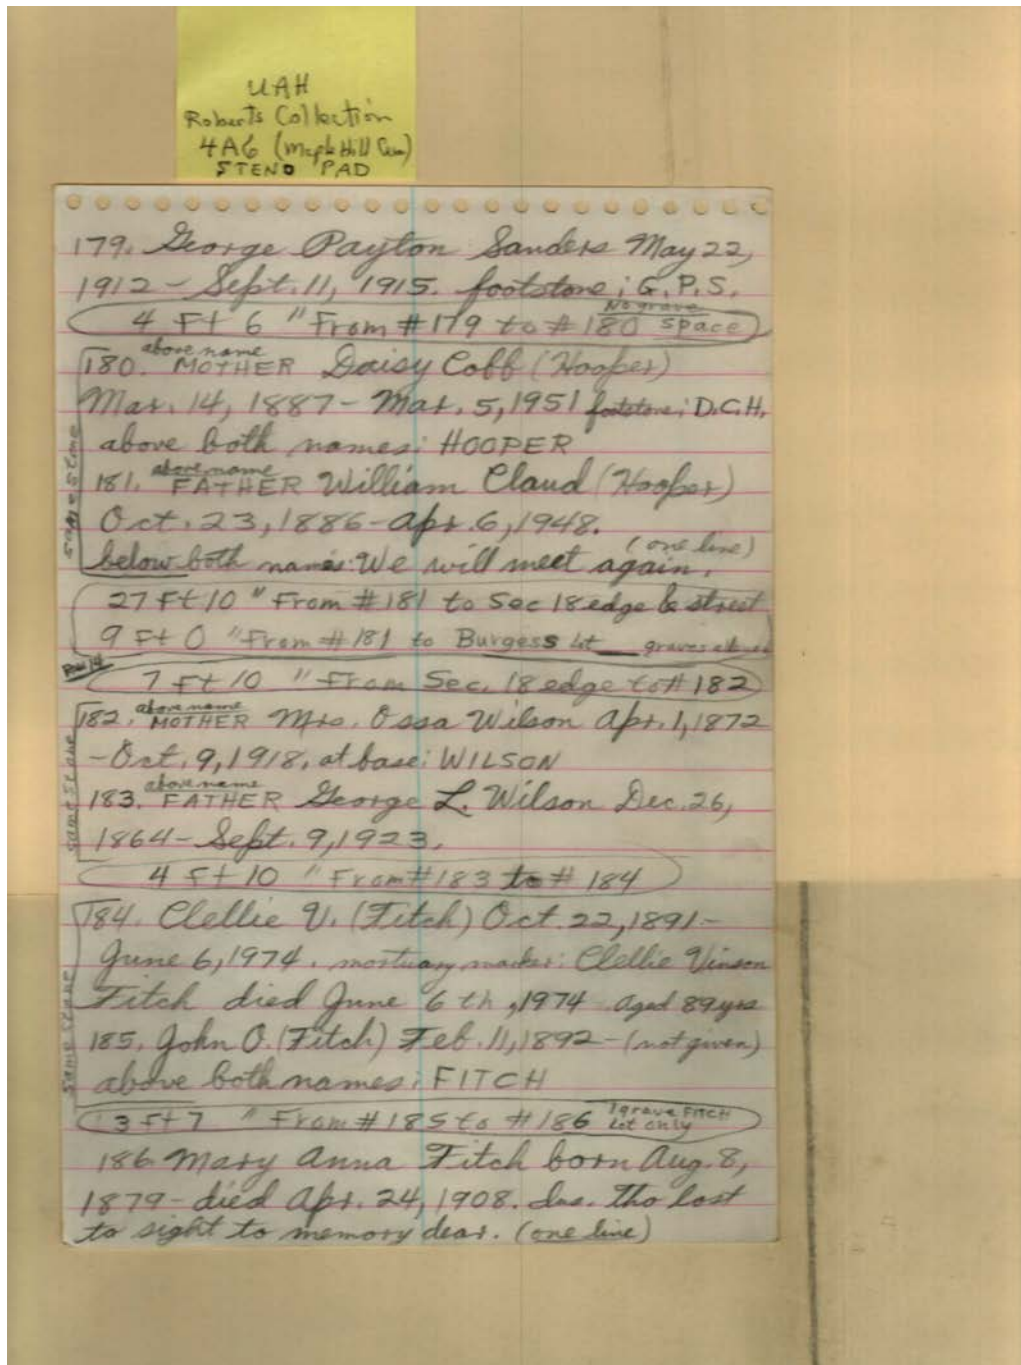 UAH
Roberts Collection
4A6 (Maple Hill Cem)
STENO PAD
179. George Payton Sanders May 22,
1912 - Sept. 11, 1915. footstone: G.P.S.
4 Ft 6 " From #179 to #180 No grave space
180. above name MOTHER Daisy Cobb (Hooper)
Mar. 14, 1887 - Mar. 5, 1951 footstone: D.C.H.
above both names: HOOPER
181. above name FATHER William Claud (Hooper)
Oct. 23, 1886 - Apr. 6, 1948.
same stone
below both names: We will meet again. (one line)
27 Ft 10 " From #181 to Sec 18 edge & street
9 Ft 0 " From #181 to Burgess Lot graves
Row 14
7 Ft 10 " From Sec. 18 edge to #182
182. above name MOTHER Mrs. Ossa Wilson Apr. 1, 1872
- Oct. 9, 1918. at base: WILSON
183. above name FATHER George L. Wilson Dec. 26,
same stone
1864 - Sept. 9, 1923.
4 Ft 10 " From #183 to #184
184. Clellie V. (Fitch) Oct. 22, 1891 -
June 6, 1974. mortuary marker: Clellie Vinson
Fitch died June 6 th, 1974 aged 89 yrs
185. John O. (Fitch) Feb. 11, 1892 - (not given)
same stone
above both names: FITCH
3 Ft 7 " From #185 to #186 1 grave FITCH Lot only
186. Mary Anna Fitch born Aug. 8,
1879 - died Apr. 24, 1908. Ins. Tho lost
to sight to memory dear. (one line)